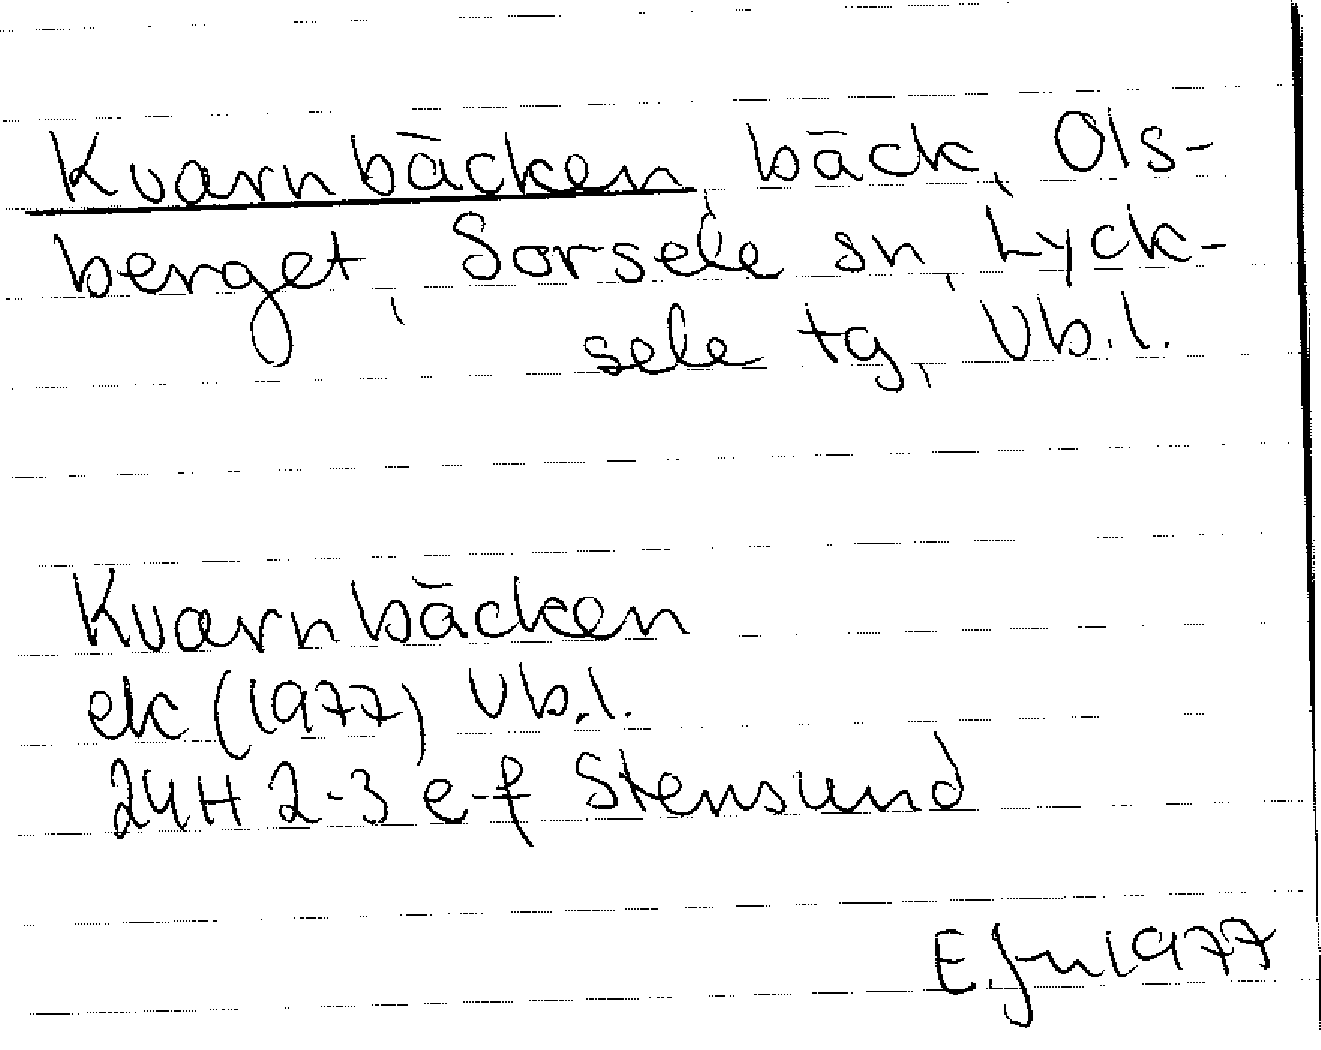 Kvarnbäcken, bäck, Ols-
berget, Sorsele sn, Lyck-
sele tg, Vb.l.
Kvarnbäcken
ek (1977) Vb.l.
24H 2-3 e-f Stensund
E 1977